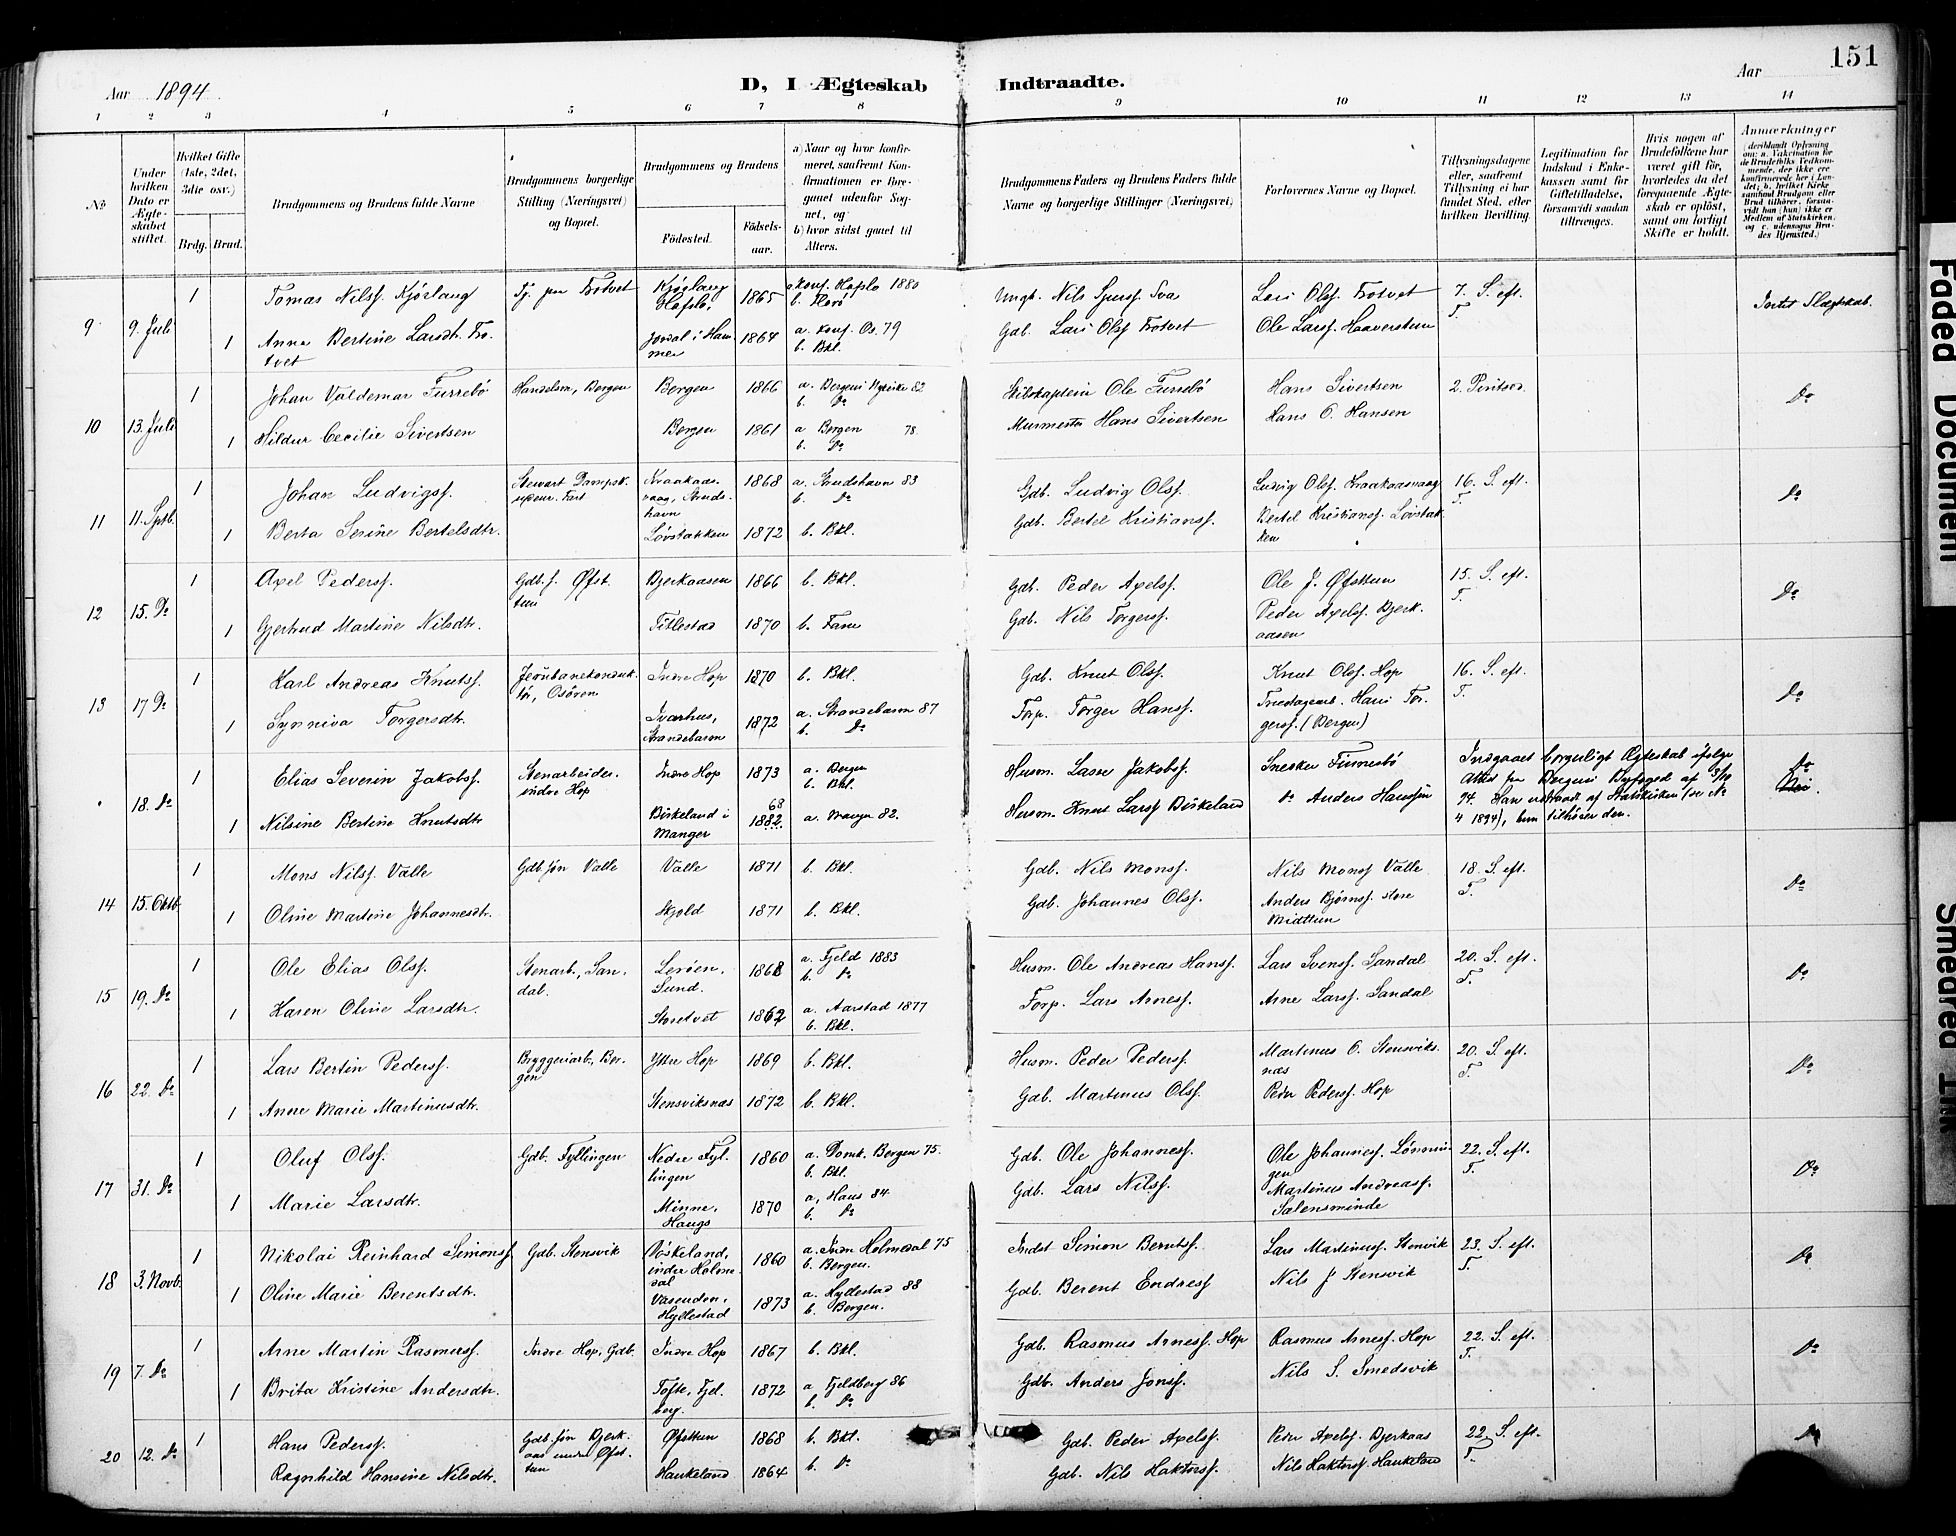 151
Aar 1894
D, I Ægteskab Indtraadte.
Aar
1 2 3 4 5 6 7 8 9 10 11 12 13 14
No
Under hvilken Dato er Ægteskabet stiftet.
Hvilket Gifte (1ste, 2det, 3die osv.)
Brdg. Brud.
Brudgommens og Brudens fulde Navne
Brudgommens borgerlige Stilling (Næringsvei) og Bopæl.
Brudgommens og Brudens
Fødested.
Fødselsaar.
a) Naar og hvor konfirmeret, saafremt Konfirmationen er foregaaet udenfor Sognet, og
b) hvor sidst gaaet til Alters.
Brudgommens Faders og Brudens Faders fulde Navne og borgerlige Stillinger (Næringsvei)
Forlovernes Navne og Bopæl.
Tillysningsdagene eller, saafremt Tillysning ei har fundet Sted, efter hvilken Bevilling.
Legitimation for Indskud i Enkekassen samt for Giftetilladelse, forsaavidt saadan tiltrænges.
Hvis nogen af Brudefolkene har været gift før, hvorledes da det foregaaende Ægteskab er opløst, samt om lovligt Skifte er holdt.
Anmærkninger
9 9. Juli 1 Tomas Nilsf. Kjørlaug Tj. paa Trotvet Kjørlaug Hafslo, 1865 a. Konf. Hafslo 1880 b. Florø Ungk. Nils Sjursf. Sva Lars Olsf. Trotvet 7. S. eft. T. Intet Slægtskab.
1 Anna Bertine Larsdtr. Trotvet Jordal i Hammer 1864 a. Konf. Os. 79 b. Bkl. Gdb. Lars Olsf Trotvet Ole Larsf. Haaverstun
10 13. Juli 1 Johan Valdemar Furrebø Handelsm, Bergen Bergen 1866 a. Bergens Nykirke 82 b. Do Skibskaptein Ole Furrebø Hans Sivertsen 2. Pintsed. Do
1 Hildur Cecilie Sivertsen Bergen 1861 a Bergen 78. b. Do Murmester Hans Sivertsen Hans O. Hansen
11 11. Sptb. 1 Johan Ludvigsf. Stewart Dampsk. Kraakaasvaag, Strudshavn 1868 a. Strudshavn 83 b. Do Gdb. Ludvig Olsf. Ludvig Olsf. Kraakaasvaag 16. S. eft. T. Do
1 Berta Serine Bertelsdtr. Løvstakken 1872 b. Bkl. Gdb. Bertel Kristiansf. Bertel Kristiansf. Løvstakken
12 15. Do 1 Axel Pedersf. Gdb. f. Øfsttun Bjerkaasen 1866 b. Bkl. Gdb. Peder Axelsf. Ole J. Øfsttun 15. S. eft. T. Do
1 Gjertrud Martine Nilsdtr. Titlestad 1870 b. Fane Gdb. Nils Torgersf. Peder Axelsf. Bjerkaasen
13 17 Do 1 Karl Andreas Knutsf. Jernbanekonduktør, Osøren Indre Hop 1870 b. Bkl. Gdb. Knut Olsf. Knut Olsf. Hop 16. S. eft. T. Do
1 Synniva Torgersdtr. Ivarhus, Strandebarm 1872 a. Strandebarm 87 b. Do Forp. Torger Hansf. Hans Torgersf. (Bergen)
18. Do 1 Elias Severin Jakobsf. Stenarbeider. indre Hop Indre Hop 1873 a. Bergen b. Bkl. Husm. Lasse Jakobsf. Snesker Finnesbø Indgaaet borgerligt Ægteskab ifølge Attest fra Bergens Byfoged af 3/10 94. Han udtraadt af Statskirken (se No 4 1894), hun tilhører den. Do
1 Nilsine Bertine Knutsdtr Birkeland i Manger 68 1882 a. Manger 82. Husm. Knut Larsf Birkeland Do Anders Hansson
14 15. Oktb 1 Mons Nilsf. Valle Gdb. søn Valle Valle 1871 b. Bkl. Gdb. Nils Monsf. Nils Monsf Valle 18. S. eft. T. Do
1 Oline Martine Johannesdtr. Skjold 1871 b. Bkl. Gdb. Johannes Olsf. Anders Bjørnsf. store Midttun
15 19. Do 1 Ole Elias Olsf. Stenarb., Sandal. Lerøen, Sund. 1868 a. Fjeld 1883 b. Do Husm. Ole Andreas Hansf. Lars Svensf. Sandal 20. S. eft. T. Do
1 Karen Oline Larsdtr. Storetvet 1862 a. Aarstad 1877 b. Bkl. Forp. Lars Arnesf. Arne Larsf. Sandal
16 22. Do 1 Lars Bertin Pedersf. Bryggeriarb, Bergen Ytre Hop 1869 b. Bkl. Husm. Peder Pedersf. Martinus O. Stensviksnæs 20. S. eft. T. Do
1 Anne Marie Martinusdtr. Stensviksnæs 1872 b. Bkl. Gdb. Martinus Olsf. Peder Pedersf. Hop
17 31. Do 1 Oluf Olsf. Gdb. Fyllingen Nedre Fyllingen 1860 a. Domk. Bergen 75. b. Bkl. Gdb. Ole Johannesf. Ole Johannesf. Lønningen 22. S. eft. T. Do
1 Marie Larsdtr. Minne, Haugs 1870 a, Haus 84 b. Do Gdb. Lars Nilsf. Martinus Andreasf. Salensminde
18 3. Novb. 1 Nikolai Reinhard Simonsf Gdb. Stensvik Vaskeland, indre Holmedal 1860 a. Indre Holmedal 75 b. Bergen. Indst Simon Berntsf. Lars Martinusf. Stensvik 23. S. eft. T. Do
1 Oline Marie Berentsdtr. Vasenden, Hyllestad 1873 a. Hyllestad 88 b. Bergen. Gdb. Berent Endresf Nils J Stensvik
19 7. Do 1 Arne Martin Rasmusf. Indre Hop, Gdb. Indre Hop 1867 b. Bkl. Gdb. Rasmus Arnesf. Hop Rasmus Arnesf. Hop 22. S. eft. T. Do
1 Brita Kristine Andersdtr. Tofte, Fjelberg. 1872 a Fjeldberg 86 b. Do Gdb. Anders Jonsf. Nils S. Smedsvik
20 12. Do 1 Hans Pedersf. Gdb. søn Bjerkaas under Øfsttun Øfsttun 1868 b. Bkl. Gdb. Peder Axelsf. Peder Axelsf. Bjerkaas 22. S. eft. T. Do
Ragnhild Hansine Nilsdtr. Haukeland 1864 b. Do Gdb. Nils Haktorsf. Nils Haktorsf. Haukeland
Faded Document
Smeared Ink